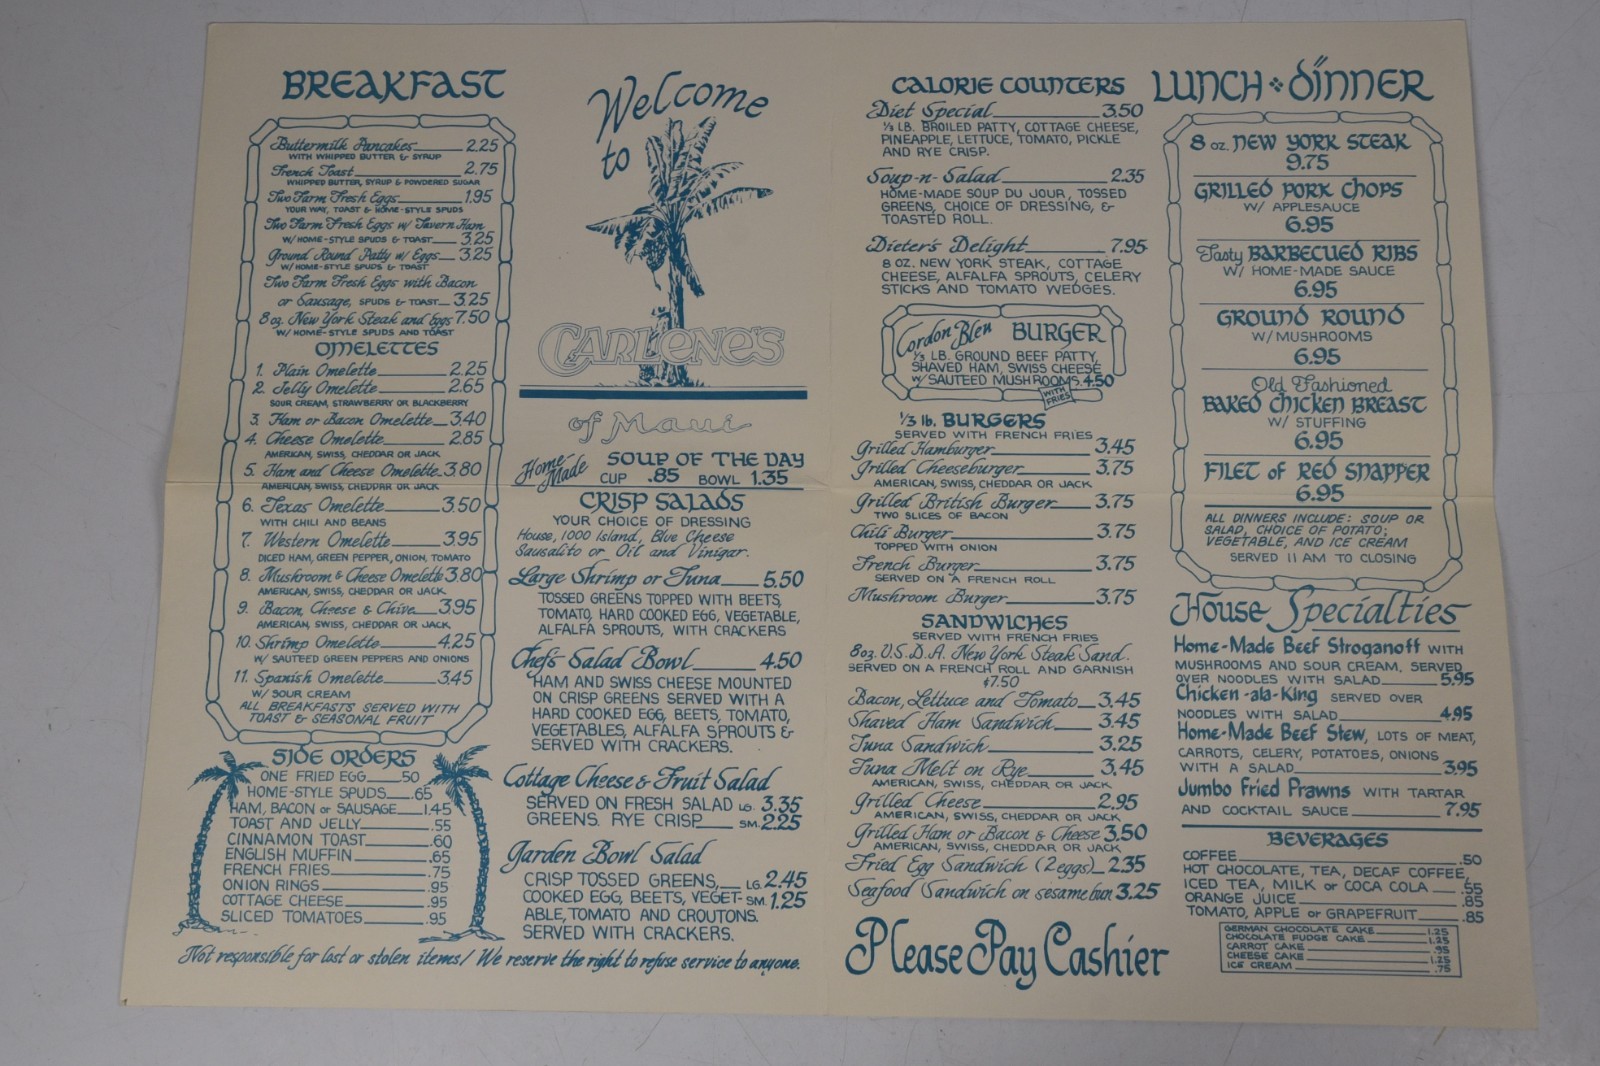 BREAKFAST
Buttermilk Pancakes 2.25
WITH WHIPPED BUTTER & SYRUP
French Toast 2.75
WHIPPED BUTTER, SYRUP & POWDERED SUGAR
Two Farm Fresh Eggs 1.95
YOUR WAY, TOAST & HOME-STYLE SPUDS
Two Farm Fresh Eggs w/ Tavern Ham
W/ HOME-STYLE SPUDS & TOAST 3.25
Ground Round Patty w/ Eggs 3.25
W/ HOME-STYLE SPUDS & TOAST
Two Farm Fresh Eggs with Bacon
or Sausage, SPUDS & TOAST 3.25
8 oz. New York Steak and Eggs 7.50
W/ HOME-STYLE SPUDS AND TOAST
OMELETTES
1. Plain Omelette 2.25
2. Jelly Omelette 2.65
SOUR CREAM, STRAWBERRY OR BLACKBERRY
3. Ham or Bacon Omelette 3.40
4. Cheese Omelette 2.85
AMERICAN, SWISS, CHEDDAR OR JACK
5. Ham and Cheese Omelette 3.80
AMERICAN, SWISS, CHEDDAR OR JACK
6. Texas Omelette 3.50
WITH CHILI AND BEANS
7. Western Omelette 3.95
DICED HAM, GREEN PEPPER, ONION, TOMATO
8. Mushroom & Cheese Omelette 3.80
AMERICAN, SWISS, CHEDDAR OR JACK
9. Bacon, Cheese & Chive 3.95
AMERICAN, SWISS, CHEDDAR OR JACK
10. Shrimp Omelette 4.25
W/ SAUTEED GREEN PEPPERS AND ONIONS
11. Spanish Omelette 3.45
W/ SOUR CREAM
ALL BREAKFASTS SERVED WITH
TOAST & SEASONAL FRUIT
SIDE ORDERS
ONE FRIED EGG .50
HOME-STYLE SPUDS .65
HAM, BACON or SAUSAGE 1.45
TOAST AND JELLY .55
CINNAMON TOAST .60
ENGLISH MUFFIN .65
FRENCH FRIES .75
ONION RINGS .95
COTTAGE CHEESE .95
SLICED TOMATOES .95
Not responsible for lost or stolen items! We reserve the right to refuse service to anyone.
Welcome
to
CARLENE'S
of Maui
Home Made SOUP OF THE DAY
CUP .85 BOWL 1.35
CRISP SALADS
YOUR CHOICE OF DRESSING
House, 1000 Island, Blue Cheese
Sausalito or Oil and Vinigar.
Large Shrimp or Tuna 5.50
TOSSED GREENS TOPPED WITH BEETS,
TOMATO, HARD COOKED EGG, VEGETABLE,
ALFALFA SPROUTS, WITH CRACKERS
Chef's Salad Bowl 4.50
HAM AND SWISS CHEESE MOUNTED
ON CRISP GREENS SERVED WITH A
HARD COOKED EGG, BEETS, TOMATO,
VEGETABLES, ALFALFA SPROUTS &
SERVED WITH CRACKERS.
Cottage Cheese & Fruit Salad
SERVED ON FRESH SALAD LG. 3.35
GREENS. RYE CRISP SM. 2.25
Garden Bowl Salad
CRISP TOSSED GREENS, LG. 2.45
COOKED EGG, BEETS, VEGET- SM. 1.25
ABLE, TOMATO AND CROUTONS.
SERVED WITH CRACKERS.
CALORIE COUNTERS
Diet Special 3.50
1/3 LB. BROILED PATTY, COTTAGE CHEESE,
PINEAPPLE, LETTUCE, TOMATO, PICKLE
AND RYE CRISP.
Soup-n-Salad 2.35
HOME-MADE SOUP DU JOUR, TOSSED
GREENS, CHOICE OF DRESSING, &
TOASTED ROLL.
Dieter's Delight 7.95
8 OZ. NEW YORK STEAK, COTTAGE
CHEESE, ALFALFA SPROUTS, CELERY
STICKS AND TOMATO WEDGES.
Cordon Bleu BURGER
1/3 LB. GROUND BEEF PATTY,
SHAVED HAM, SWISS CHEESE
W/ SAUTEED MUSHROOMS. 4.50
WITH FRIES
1/3 lb. BURGERS
SERVED WITH FRENCH FRIES
Grilled Hamburger 3.45
Grilled Cheeseburger 3.75
AMERICAN, SWISS, CHEDDAR OR JACK
Grilled British Burger 3.75
TWO SLICES OF BACON
Chili Burger 3.75
TOPPED WITH ONION
French Burger 3.75
SERVED ON A FRENCH ROLL
Mushroom Burger 3.75
SANDWICHES
SERVED WITH FRENCH FRIES
8 oz. U.S.D.A. New York Steak Sand.
SERVED ON A FRENCH ROLL AND GARNISH
$7.50
Bacon, Lettuce and Tomato 3.45
Shaved Ham Sandwich 3.45
Tuna Sandwich 3.25
Tuna Melt on Rye 3.45
AMERICAN, SWISS, CHEDDAR OR JACK
Grilled Cheese 2.95
AMERICAN, SWISS, CHEDDAR OR JACK
Grilled Ham or Bacon & Cheese 3.50
AMERICAN, SWISS, CHEDDAR OR JACK
Fried Egg Sandwich (2 eggs) 2.35
Seafood Sandwich on sesame bun 3.25
Please Pay Cashier
LUNCH DINNER
8 oz. NEW YORK STEAK
9.75
GRILLED PORK CHOPS
W/ APPLESAUCE
6.95
Tasty BARBECUED RIBS
W/ HOME-MADE SAUCE
6.95
GROUND ROUND
W/ MUSHROOMS
6.95
Old Fashioned
BAKED CHICKEN BREAST
W/ STUFFING
6.95
FILET of RED SNAPPER
6.95
ALL DINNERS INCLUDE: SOUP OR
SALAD, CHOICE OF POTATO;
VEGETABLE, AND ICE CREAM
SERVED 11 AM TO CLOSING
House Specialties
Home-Made Beef Stroganoff WITH
MUSHROOMS AND SOUR CREAM, SERVED
OVER NOODLES WITH SALAD 5.95
Chicken-ala-King SERVED OVER
NOODLES WITH SALAD 4.95
Home-Made Beef Stew, LOTS OF MEAT,
CARROTS, CELERY, POTATOES, ONIONS
WITH A SALAD 3.95
Jumbo Fried Prawns WITH TARTAR
AND COCKTAIL SAUCE 7.95
BEVERAGES
COFFEE .50
HOT CHOCOLATE, TEA, DECAF COFFEE,
ICED TEA, MILK or COCA COLA .65
ORANGE JUICE .85
TOMATO, APPLE or GRAPEFRUIT .85
GERMAN CHOCOLATE CAKE 1.25
CHOCOLATE FUDGE CAKE 1.25
CARROT CAKE .95
CHEESE CAKE 1.25
ICE CREAM .75